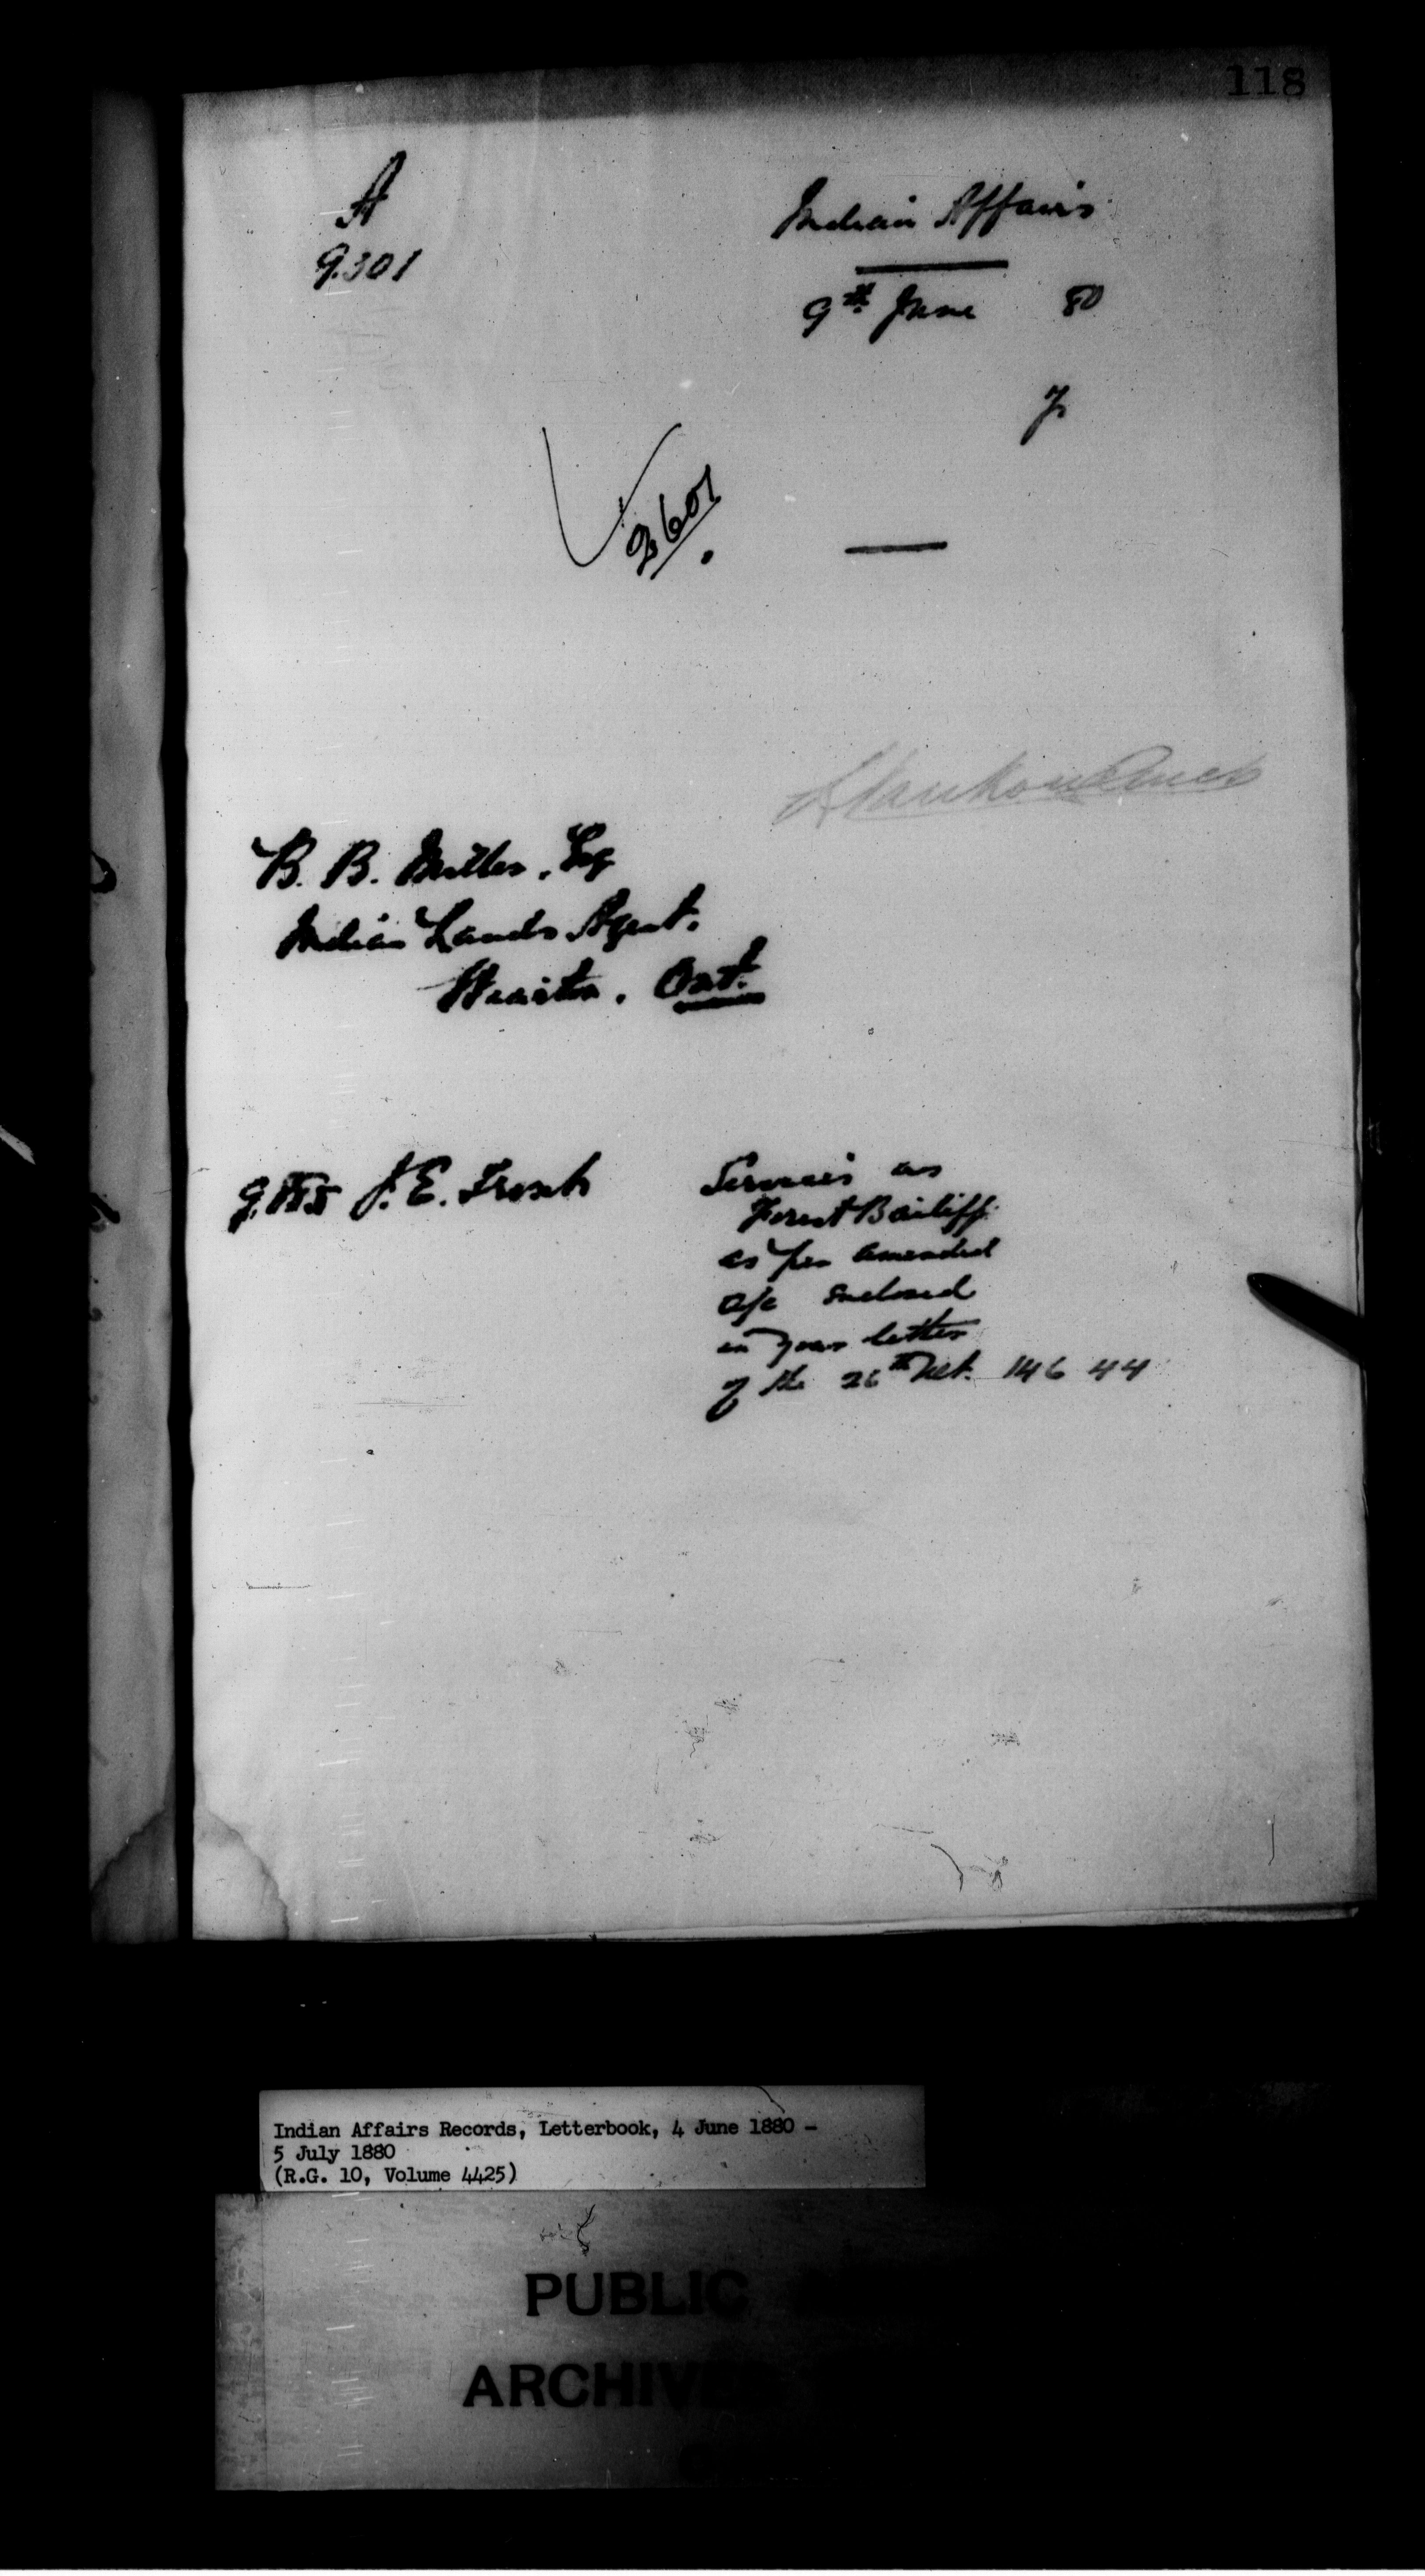 118
A
9301
Indian Affairs
9th June 80
2601
B. B. Miller, Esq
Indian Lands Agent.
Wiarton. Ont.
J. E. Frosch
Services as
Forest Bailiff
as per amended
a/c enclosed
in your letter
of the 26th Ult. 146 44
Indian Affairs Records, Letterbook, 4 June 1880 -
5 July 1880
(R.G. 10, Volume 4425)
PUBLIC
ARCHIVES